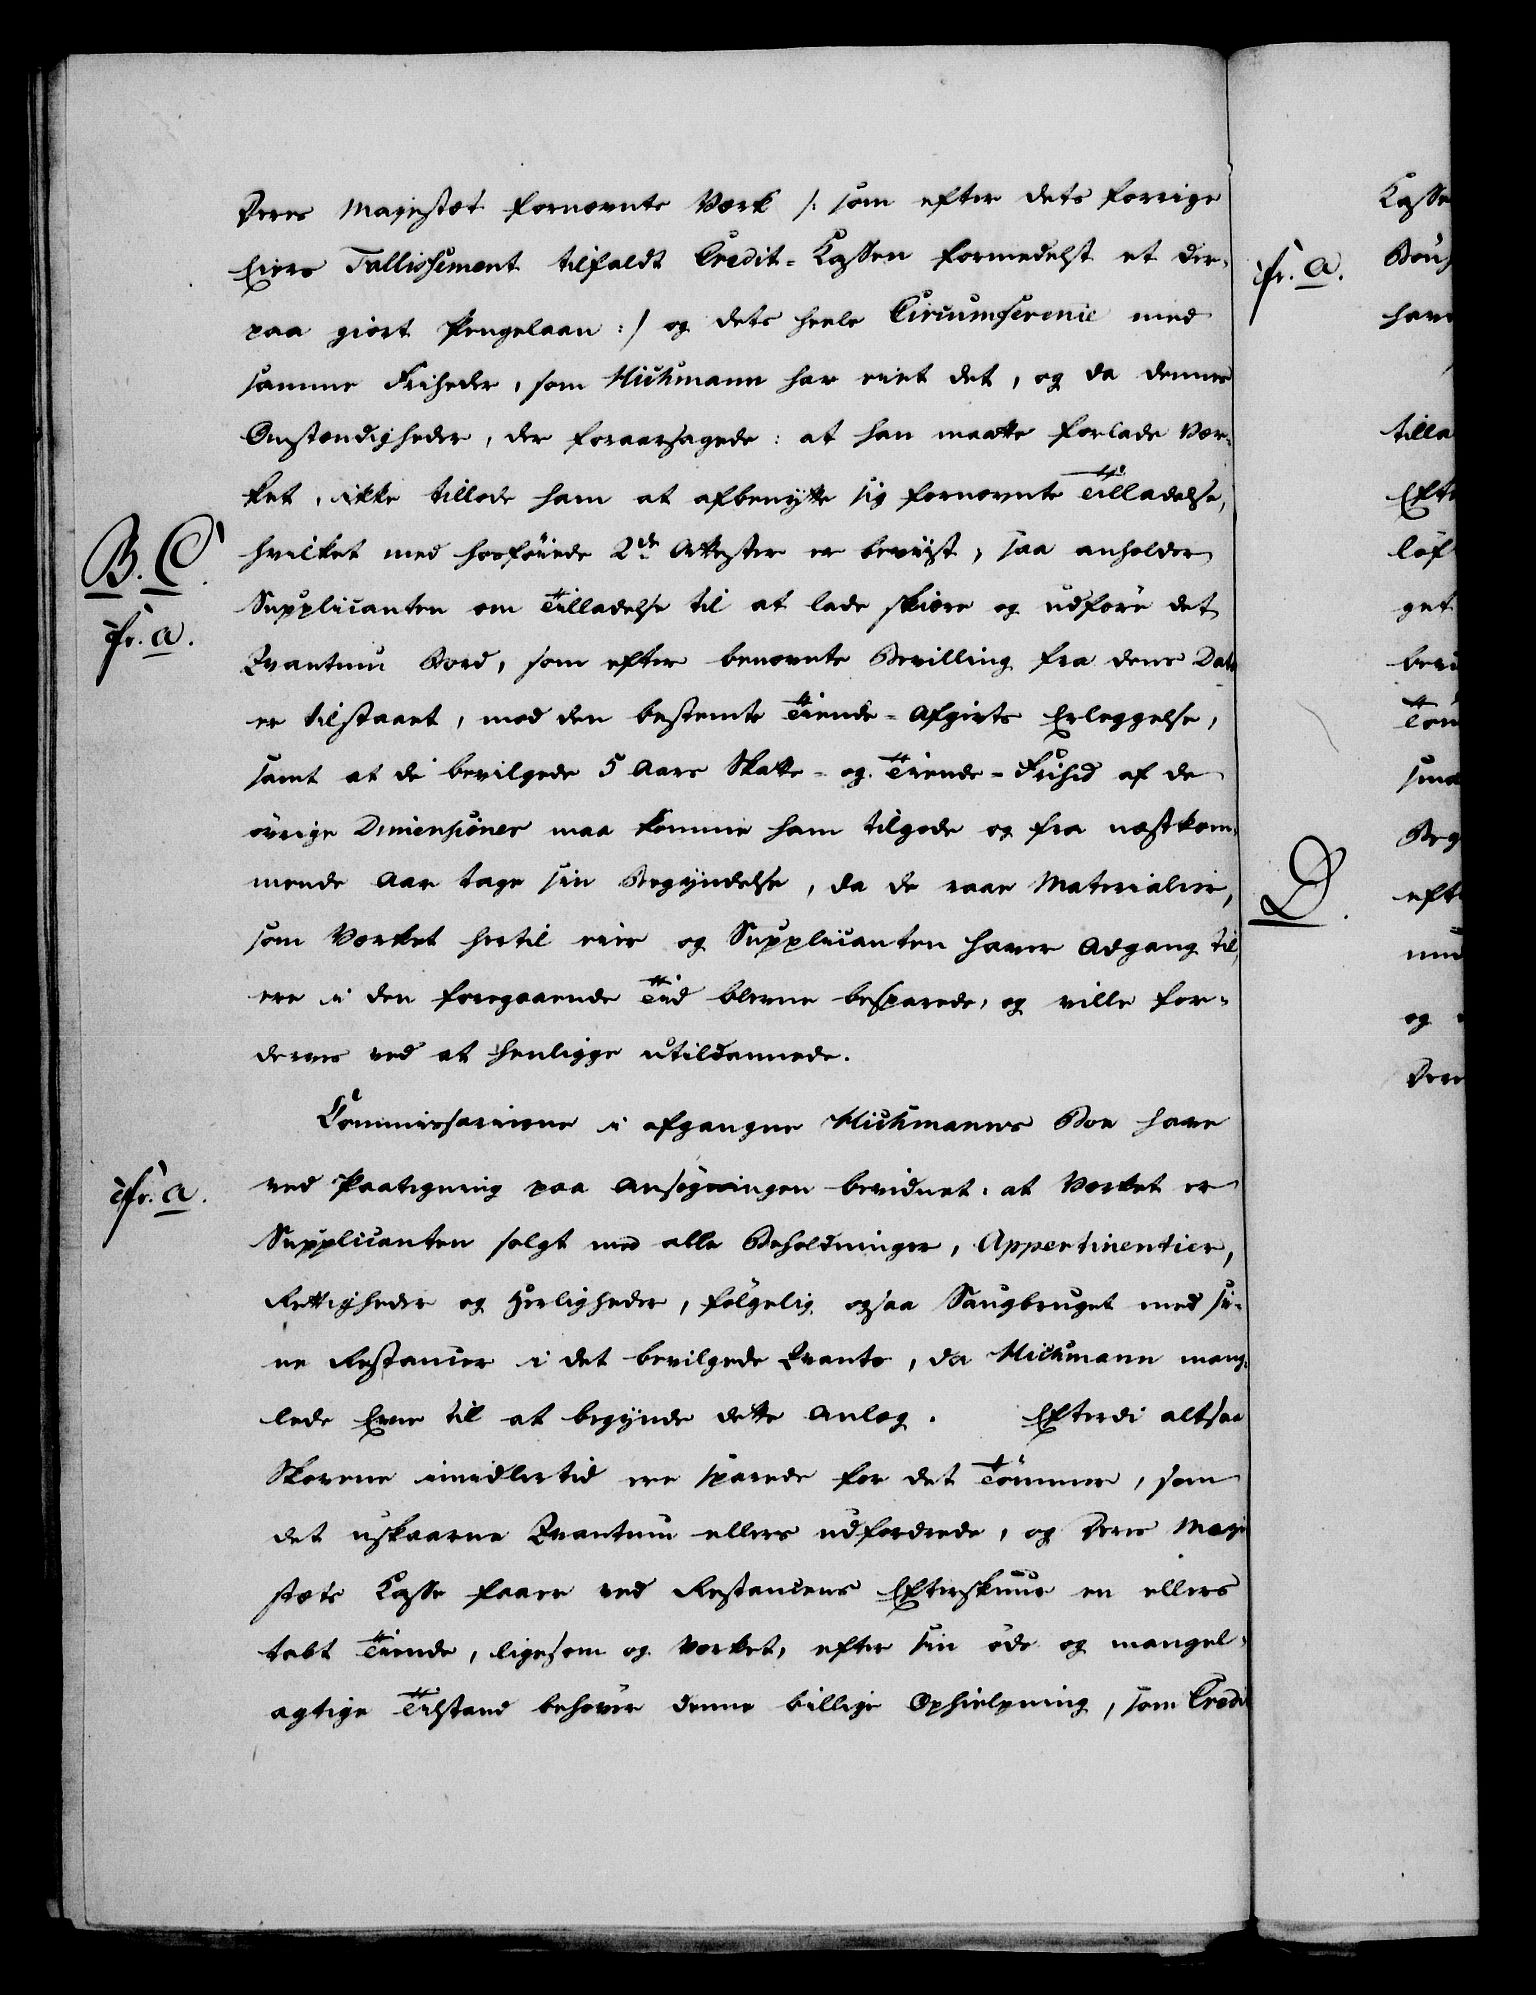 Deres Majestæt fornævnte Værk /: som efter dets forrige
Eiers Fallissement tilfaldt Credit-Kassen formedelst et der-
paa giort Pengelaan :/ og dets heele Circumference med
samme Friheder, som Hickmann har eiet det, og da dennes
Omstændigheder, der foraarsagede: at han maatte forlade Vær-
ket, ikke tillode ham at afbenytte sig fornævnte Tilladelse,
B. C.
hvilket med hosføiede 2de Attester er beviist, saa anholder
Supplicanten om Tilladelse til at lade skiære og udføre det
cfr. a.
Qvantum Bord, som efter benævnte Bevilling fra dens Dato
er tilstaaet, mod den bestemte Tiende-Afgivts Erleggelse,
samt at de bevilgede 5 Aars Skatte- og Tiende-Frihed af de
øvrige Dimensioner maa komme ham tilgode og fra næstkom-
mende Aar tage sin Begyndelse, da de raae Materialier,
som Værket hertil eier og Supplicanten haver Adgang til,
ere i den foregaaende Tiid blevne besparede, og ville for-
derves ved at henligge utildannede.
Commissarierne i afgangne Hickmanns Boe have
cfr. a.
ved Paategning paa Ansøgningen bevidnet: at Værket er
Supplicanten solgt med alle Beholdninger, Appertinentier,
Rettigheder og Herligheder, følgelig ogsaa Saugbruget med si-
ne Restancer i det bevilgede Qvanto, da Hickmann mang-
lede Evne til at begynde dette Anlæg. Efterdi altsaa
Skovene imidlertid ere sparede for det Tømmer, som
det uskaarne Qvantum ellers udfordrede, og Deres Maje-
stæts Kasse faaer ved Restancens Efterskuur en ellers
tabt Tiende, ligesom og Værket, efter sin øde og mangel-
agtige Tilstand behøver denne billige Ophielpning, som Credit
cfr. a.
D.
Kasse
have
tilla
Efte
get
Tøm
efte
og
Dere